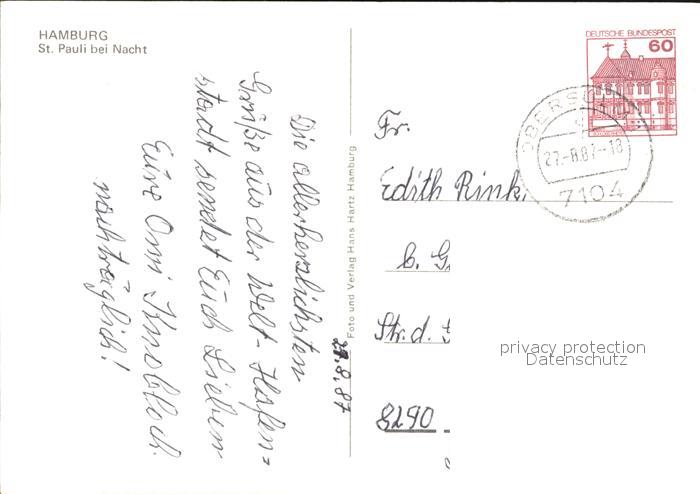 HAMBURG
St. Pauli bei Nacht
DEUTSCHE BUNDESPOST
60
27.-8.87.-18
7104
Die allerherzlichsten
Grüße aus der Welt-Hafen=
stadt sendet Euch Lieben
Eure Omi Knobloch.
nachträglich!
27.8.87
Foto und Verlag Hans Hartz Hamburg
Fr.
Edith Rink
b. G
Str. d.
8290
privacy protection
Datenschutz